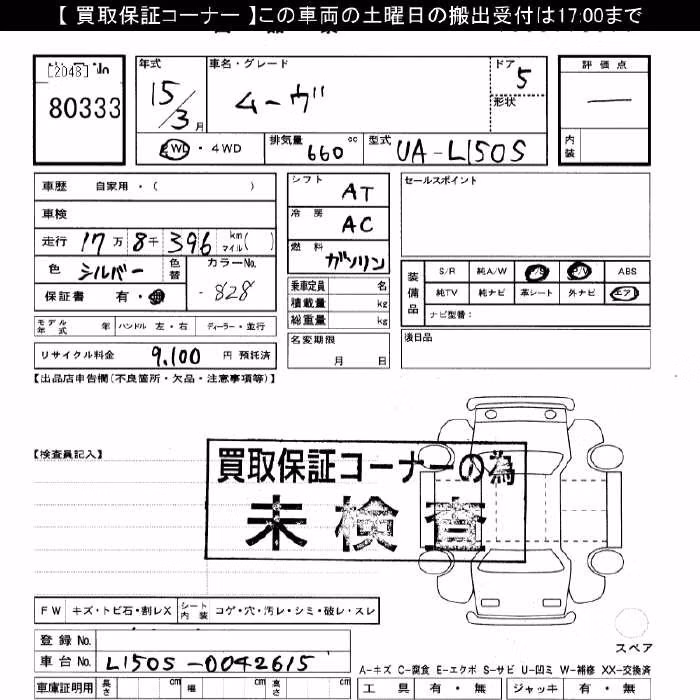 【 買取保証コーナー 】この車両の土曜日の搬出受付は17:00まで
[2048]
80333
年式
15/3月
車名・グレード
ムーヴ
ドア
5
形状
評価点
—
内装
2WD・4WD
排気量 660 cc
型式 UA-L150S
車歴 自家用・( )
車検
走行 17万8千396 km マイル( )
色 シルバー 色替
カラーNo. -828
保証書 有・無
モデル年式 年 ハンドル 左・右 ディーラー・並行
リサイクル料金 9,100 円 預託済
シフト AT
冷房 AC
燃料 ガソリン
乗車定員 名
積載量 kg
総重量 kg
名変期限
月 日
セールスポイント
装備品
S/R 純A/W P/S P/W ABS
純TV 純ナビ 革シート 外ナビ エアB
ナビ型番:
後日品
【出品店申告欄(不良箇所・欠品・注意事項等)】
【検査員記入】
買取保証コーナーの為
未検査
FW キズ・トビ石・割レX シート内装 コゲ・穴・汚レ・シミ・破レ・スレ
登録No.
車台No. L150S-0042615
スペア
A-キズ C-腐食 E-エクボ S-サビ U-凹ミ W-補修 XX-交換済
車庫証明用 長さ cm 幅 cm 高さ cm
工具 有・無 ジャッキ 有・無